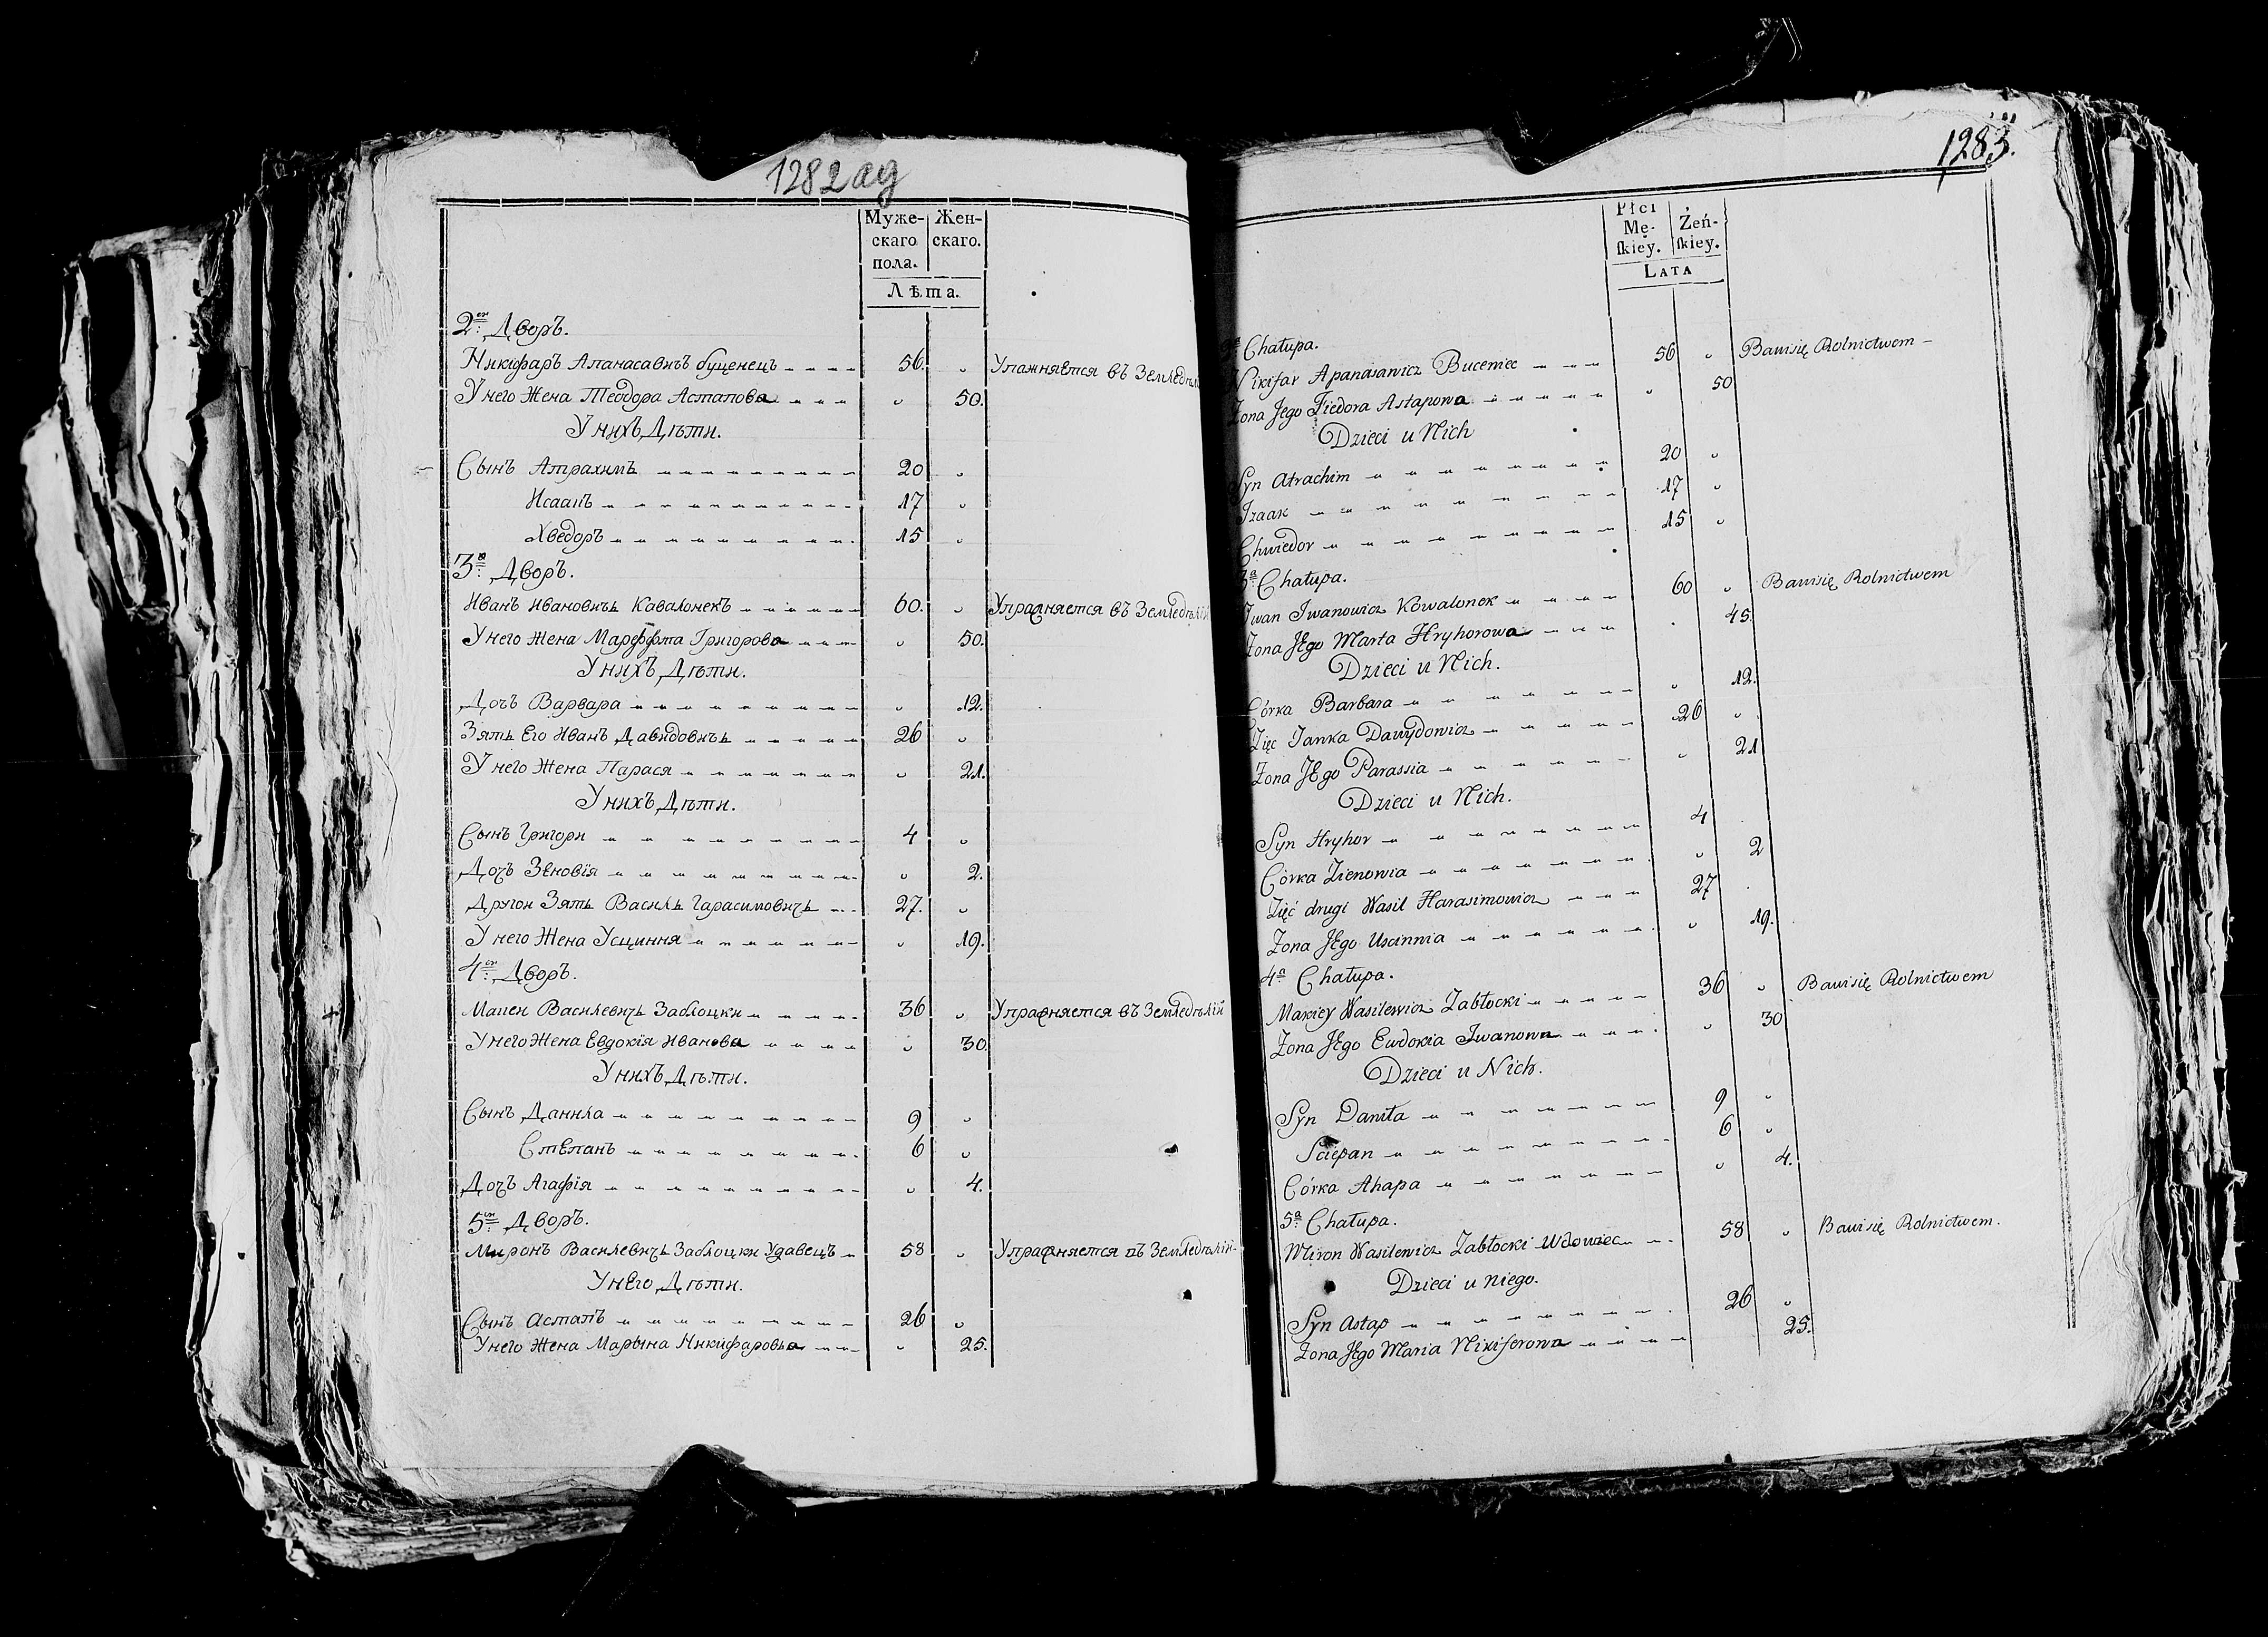 1282 ад
Муже- Жен-
скаго скаго.
пола.
Лѣта.
2ой Дворъ.
Никифаръ Апанасавичъ буценецъ 56. Упажняется въ Земледѣл
У него Жена Теодора Астапова 50.
У нихъ Дѣти.
Сынъ Атрахимъ 20
Исаакъ 17
Хведоръ 15
3й Дворъ.
Иванъ Ивановичъ Кавалонекъ 60. Упражняется въ Земледѣлїи
У него Жена Мареффта Григорова 50.
У нихъ Дѣти.
Дочъ Варвара 12.
Зять Его Иванъ Давидовичь 26
У него Жена Парася 21.
У нихъ Дѣти.
Сынъ Григори 4
Дочъ Зѣновїя 2.
Другои Зять Василь Гарасимовичь 27.
У него Жена Усциння 19.
4ой Дворъ.
Макеи Василевичь Заблоцки 36 Упражняется въ Земледѣлїи
У него Жена Евдокїя Иванова 30.
У нихъ Дѣти.
Сынъ Данила 9
Стѣпанъ 6
Дочъ Агафїя 4.
5ой Дворъ.
Миронъ Василевичь Заблоцки Удавецъ 58 Упражняется въ Земледѣлїи
У него Дѣти.
Сынъ Астапъ 26
У него Жена Марьіна Никифаровьа 25.
1283.
Płci
Mę- Żeń-
ſkiey. ſkiey.
LATA
Chałupa.
Nikifar Apanasawicz Buceniec 56 Bawi się Rolnictwem
Zona Jego Fiedora Astapowa 50
Dzieci u Nich
Syn Atrachim 20
Izaak 17
Chwiedor 15
3a Chałupa.
Iwan Iwanowicz Kowalonek 60 Bawi się Rolnictwem
Zona JEgo Marta Hryhorowa 45.
Dzieci u Nich.
Córka Barbara 12.
Zięc Janka Dawydowicz 26
Zona JEgo Parassia 21
Dzieci u Nich.
Syn Hryhor 4
Córka Zienowia 2
Zięć drugi Wasil Harasimowicz 27
Zona JEgo Uscinnia 19.
4a Chałupa.
Makiey Wasilewicz Zabłocki 36 Bawi się Rolnictwem
Zona JEgo Ewdokia Iwanowa 30
Dzieci u Nich.
Syn Daniła 9
Sciepan 6
Córka Ahapa 4.
5a Chałupa.
Miron Wasilewicz Zabłocki Wdowiec 58 Bawi się Rolnictwem.
Dzieci u niego.
Syn Astap 26
Zona Jego Maria Nikiferowa 25.